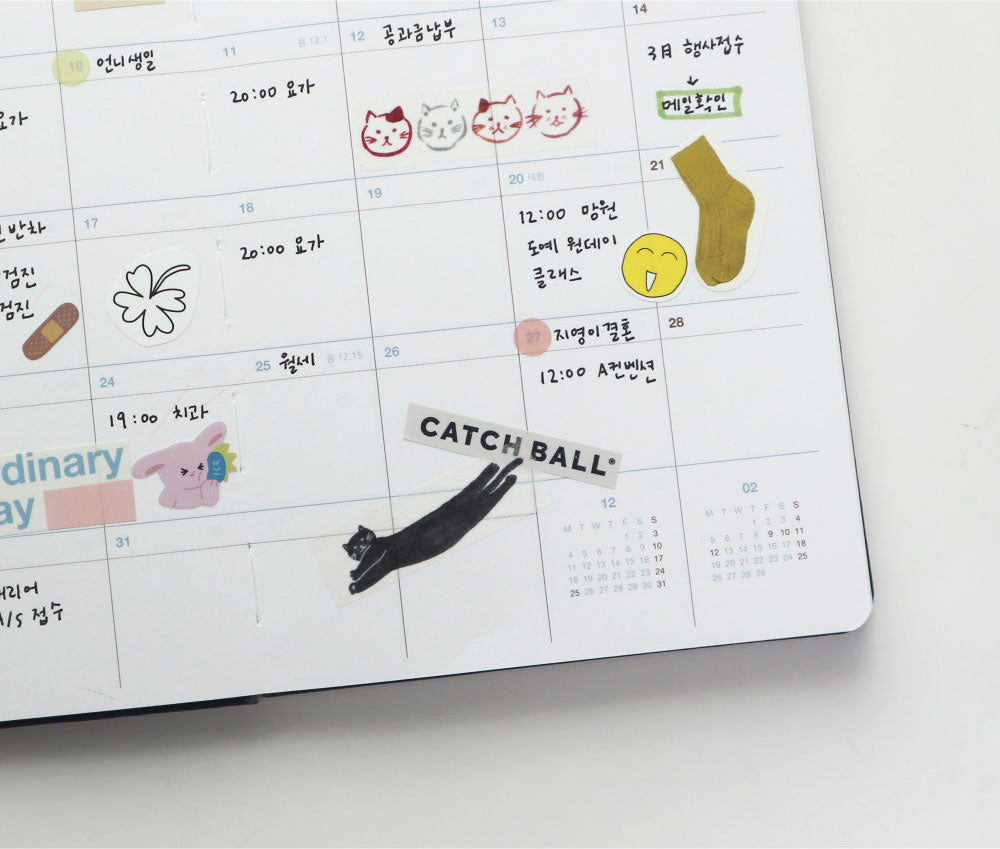 10 언니생일
11 음 12.1
12 공과금납부
13
14
요가
20:00 요가
3月 행사접수
↓
메일확인
반차
17
18
19
20 대한
21
검진
검진
20:00 요가
12:00 망원
도예 원데이
클래스
24
25 월세 음 12.15
26
27 지영이결혼
28
19:00 치과
12:00 A컨벤션
dinary
ay
ICE
CATCH BALL®
31
리어
A/S 접수
12
M T W T F S S
1 2 3
4 5 6 7 8 9 10
11 12 13 14 15 16 17
18 19 20 21 22 23 24
25 26 27 28 29 30 31
02
M T W T F S S
1 2 3 4
5 6 7 8 9 10 11
12 13 14 15 16 17 18
19 20 21 22 23 24 25
26 27 28 29